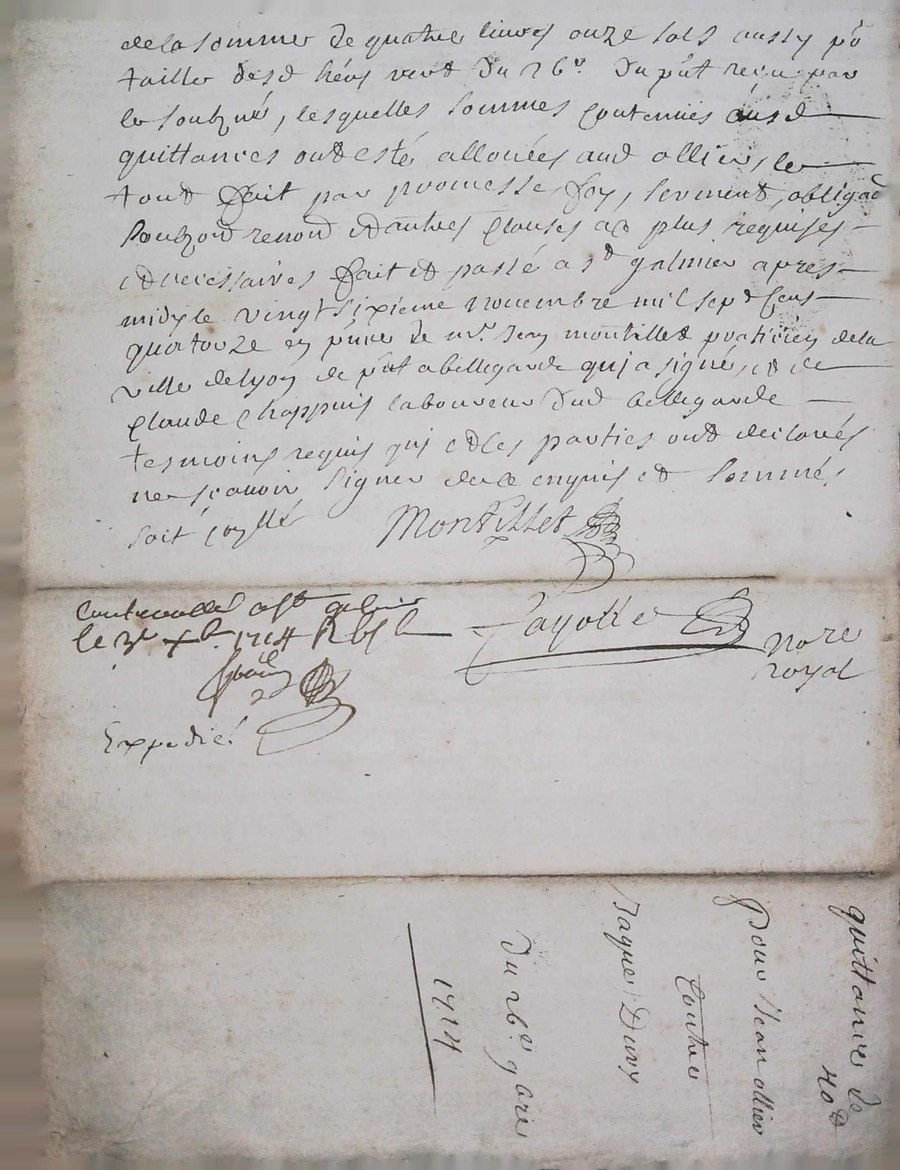 de la somme de quatre livres onze sols aussy po
tailles desd hérs vert du 26e du pnt reçu par
le soubzné, lesquelles sommes contenues ausd
quittances ont esté allouées aud ollier, le
tout fait par promesse, foy, serment, obligaõn
soubzõn renõn et autres clauses a ce plus requises
et necessaires fait et passé a st galmier apres
midy le vingt sixieme novembre mil sept cens
quatorze en pnce de mr Jean montillet praticien de la
ville de lyon de pnt a bellegarde qui a signé, et de
Claude Chappuis laboureur dud bellegarde
tesmoins requis qui et les parties ont declarés
ne scavoir signer de ce enquis et sommés
soit
Montillet
Controollé a st galmier
le 3e xbre 1714
Fayolle nore
royal
Expedié
quittance de
40
pour Jean ollier
Contre
Jaques Duvy
du 26e 9bre
1714